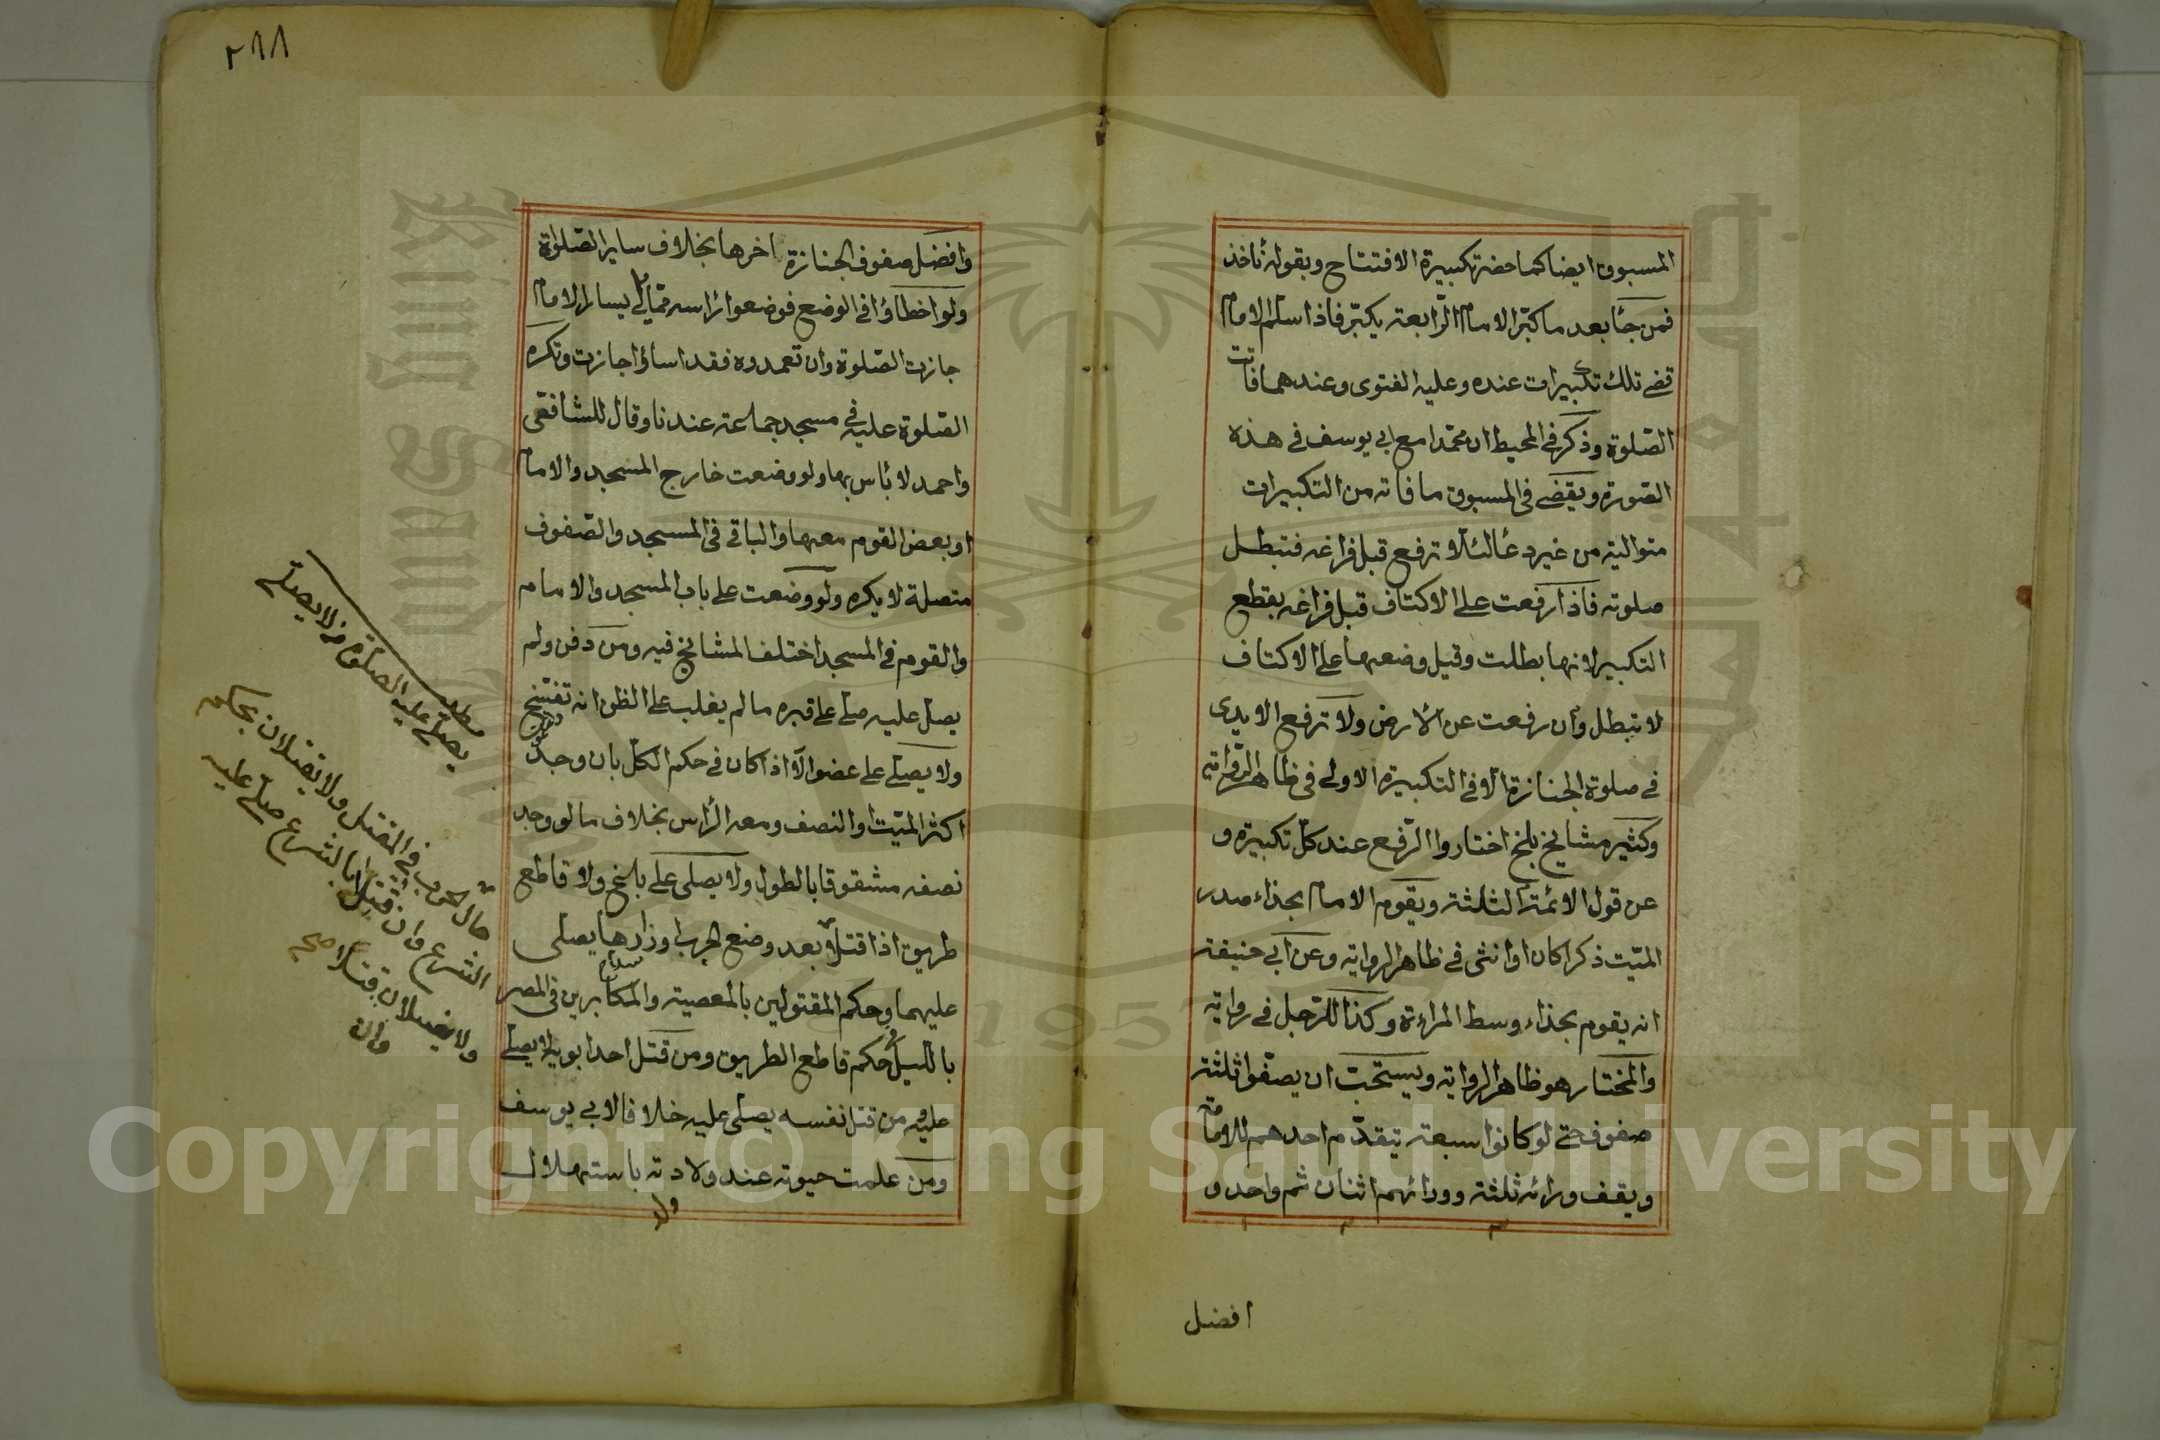 المسبوق ايضا كما حضر تكبيرة الافتتاح وبقوله ناخذ
فمن جآء بعد ما كبّر الامام الرّابعة يكبّر فاذا سلم الامام
قضے تلك تكبيرات عنده وعليه الفتوى وعندهما فاتت
الصّلوة وذكر فى المحيط ان محمّدا مع ابى يوسف فى هذه
الصّورة ويقضے فى المسبوق ما فاته من التكبيرات
متوالية من غير دعآء لئلّا ترفع قبل فراغه فتبطل
صلوته فاذا رفعت على الاكتاف قبل فراغه يقطع
التكبير لانها بطلت وقيل وضعها على الاكتاف
لا تبطل وان رفعت عن الارض ولا ترفع الايدى
فى صلوة الجنازة الّا فى التكبيرة الاولى فى ظاهر الرّواية
وكثير مشايخ بلخ اختاروا الرّفع عند كلّ تكبيرة و
عن قول الائمّة الثلثة ويقوم الامام بحذاء صدر
الميّت ذكرا كان او انثى فى ظاهر الرواية وعن ابى حنيفة
انه يقوم بحذاء وسط المراءة وكذا للرّجل فى رواية
والمختار هو ظاهر الرواية ويستحبّ ان يصفّوا ثلثة
صفوف حتے لو كانوا سبعة يتقدّم احدهم للامامة
ويقف ورائه ثلثة وورائهم اثنان ثم واحد و
افضل
٢٨٨
وافضل صفوف الجنازة اخرها بخلاف ساير الصّلواة
ولو اخطاؤا فى الوضع فوضعوا رأسه ممّا يلى يسار الامام
جازت الصّلوة وان تعمدوه فقد اساؤا جازت وتكره
الصّلوة عليه فى مسجد جماعة عندنا وقال للشافعى
واحمد لا بأس بها ولو وضعت خارج المسجد والامام
او بعض القوم معها والباقى فى المسجد والصّفوف
متصلة لا يكره ولو وضعت على باب المسجد والامام
والقوم فى المسجد اختلف المشايخ فيه ومن دفن ولم
يصل عليه صلى على قبره ما لم يغلب على الظن انه تفسّخ
ولا يصلى على عضو الّا اذا كان فى حكم الكلّ بان وجد
اكثر الميّت او النصف ومعه الرّاس بخلاف ما لو وجد
نصفه مشقوقا بالطول ولا يصلى على باغ ولا قاطع
طريق اذا قتلا بعد وضع الحرب اوزارها يصلى
عليهما وحكم المقتولين بالمعصية والمكابرين فى المصر
بالليل حكم قاطع الطريق ومن قتل احد ابويه لا يصلى
عليه من قتل نفسه يصلى عليه خلافا لابى يوسف
ومن علمت حيوته عند ولادته باستهلال
مطلب
يصلى عليه الصلوة من لا يصلى
الشرع وان قتلا